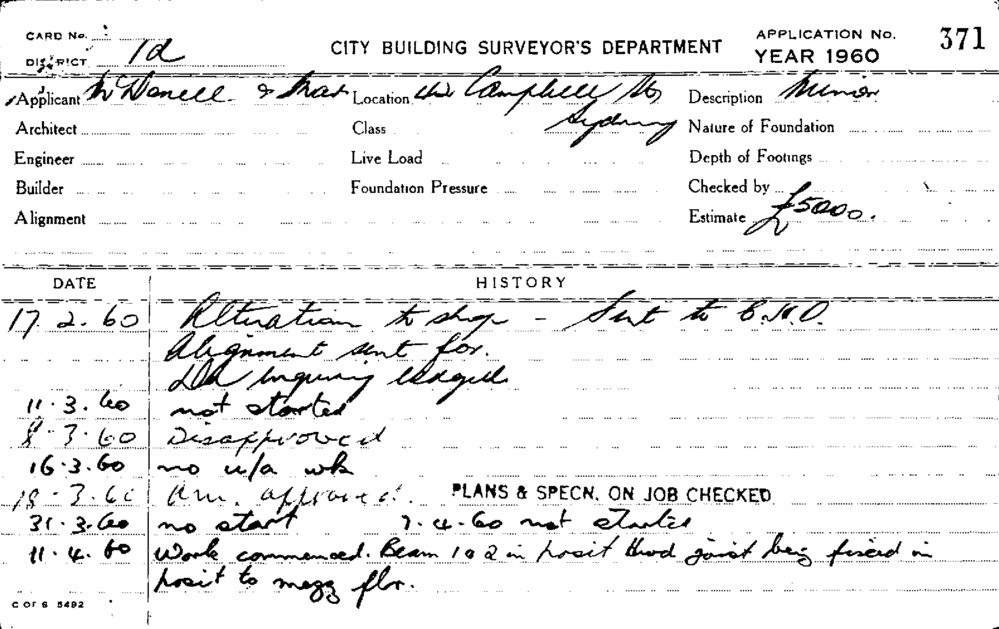 CARD No.
DISTRICT 1d
CITY BUILDING SURVEYOR'S DEPARTMENT
APPLICATION No. 371
YEAR 1960
Applicant & Location Campbell St Sydney Description Minor
Architect Class Nature of Foundation
Engineer Live Load Depth of Footings
Builder Foundation Pressure Checked by
Alignment Estimate £5000.
DATE HISTORY
17.2.60 Alteration to shop - Sent to
Alignment sent for.
11.3.60 not started
8.3.60 Disapproved
16.3.60 no u/a wk
18.3.60 approved. PLANS & SPECN. ON JOB CHECKED
31.3.60 no start 7.4.60 not started
11.4.60 Work commenced. Beam 1 & 2 in posit joist being fixed in
posit to mezz flr.
C OF S 5492